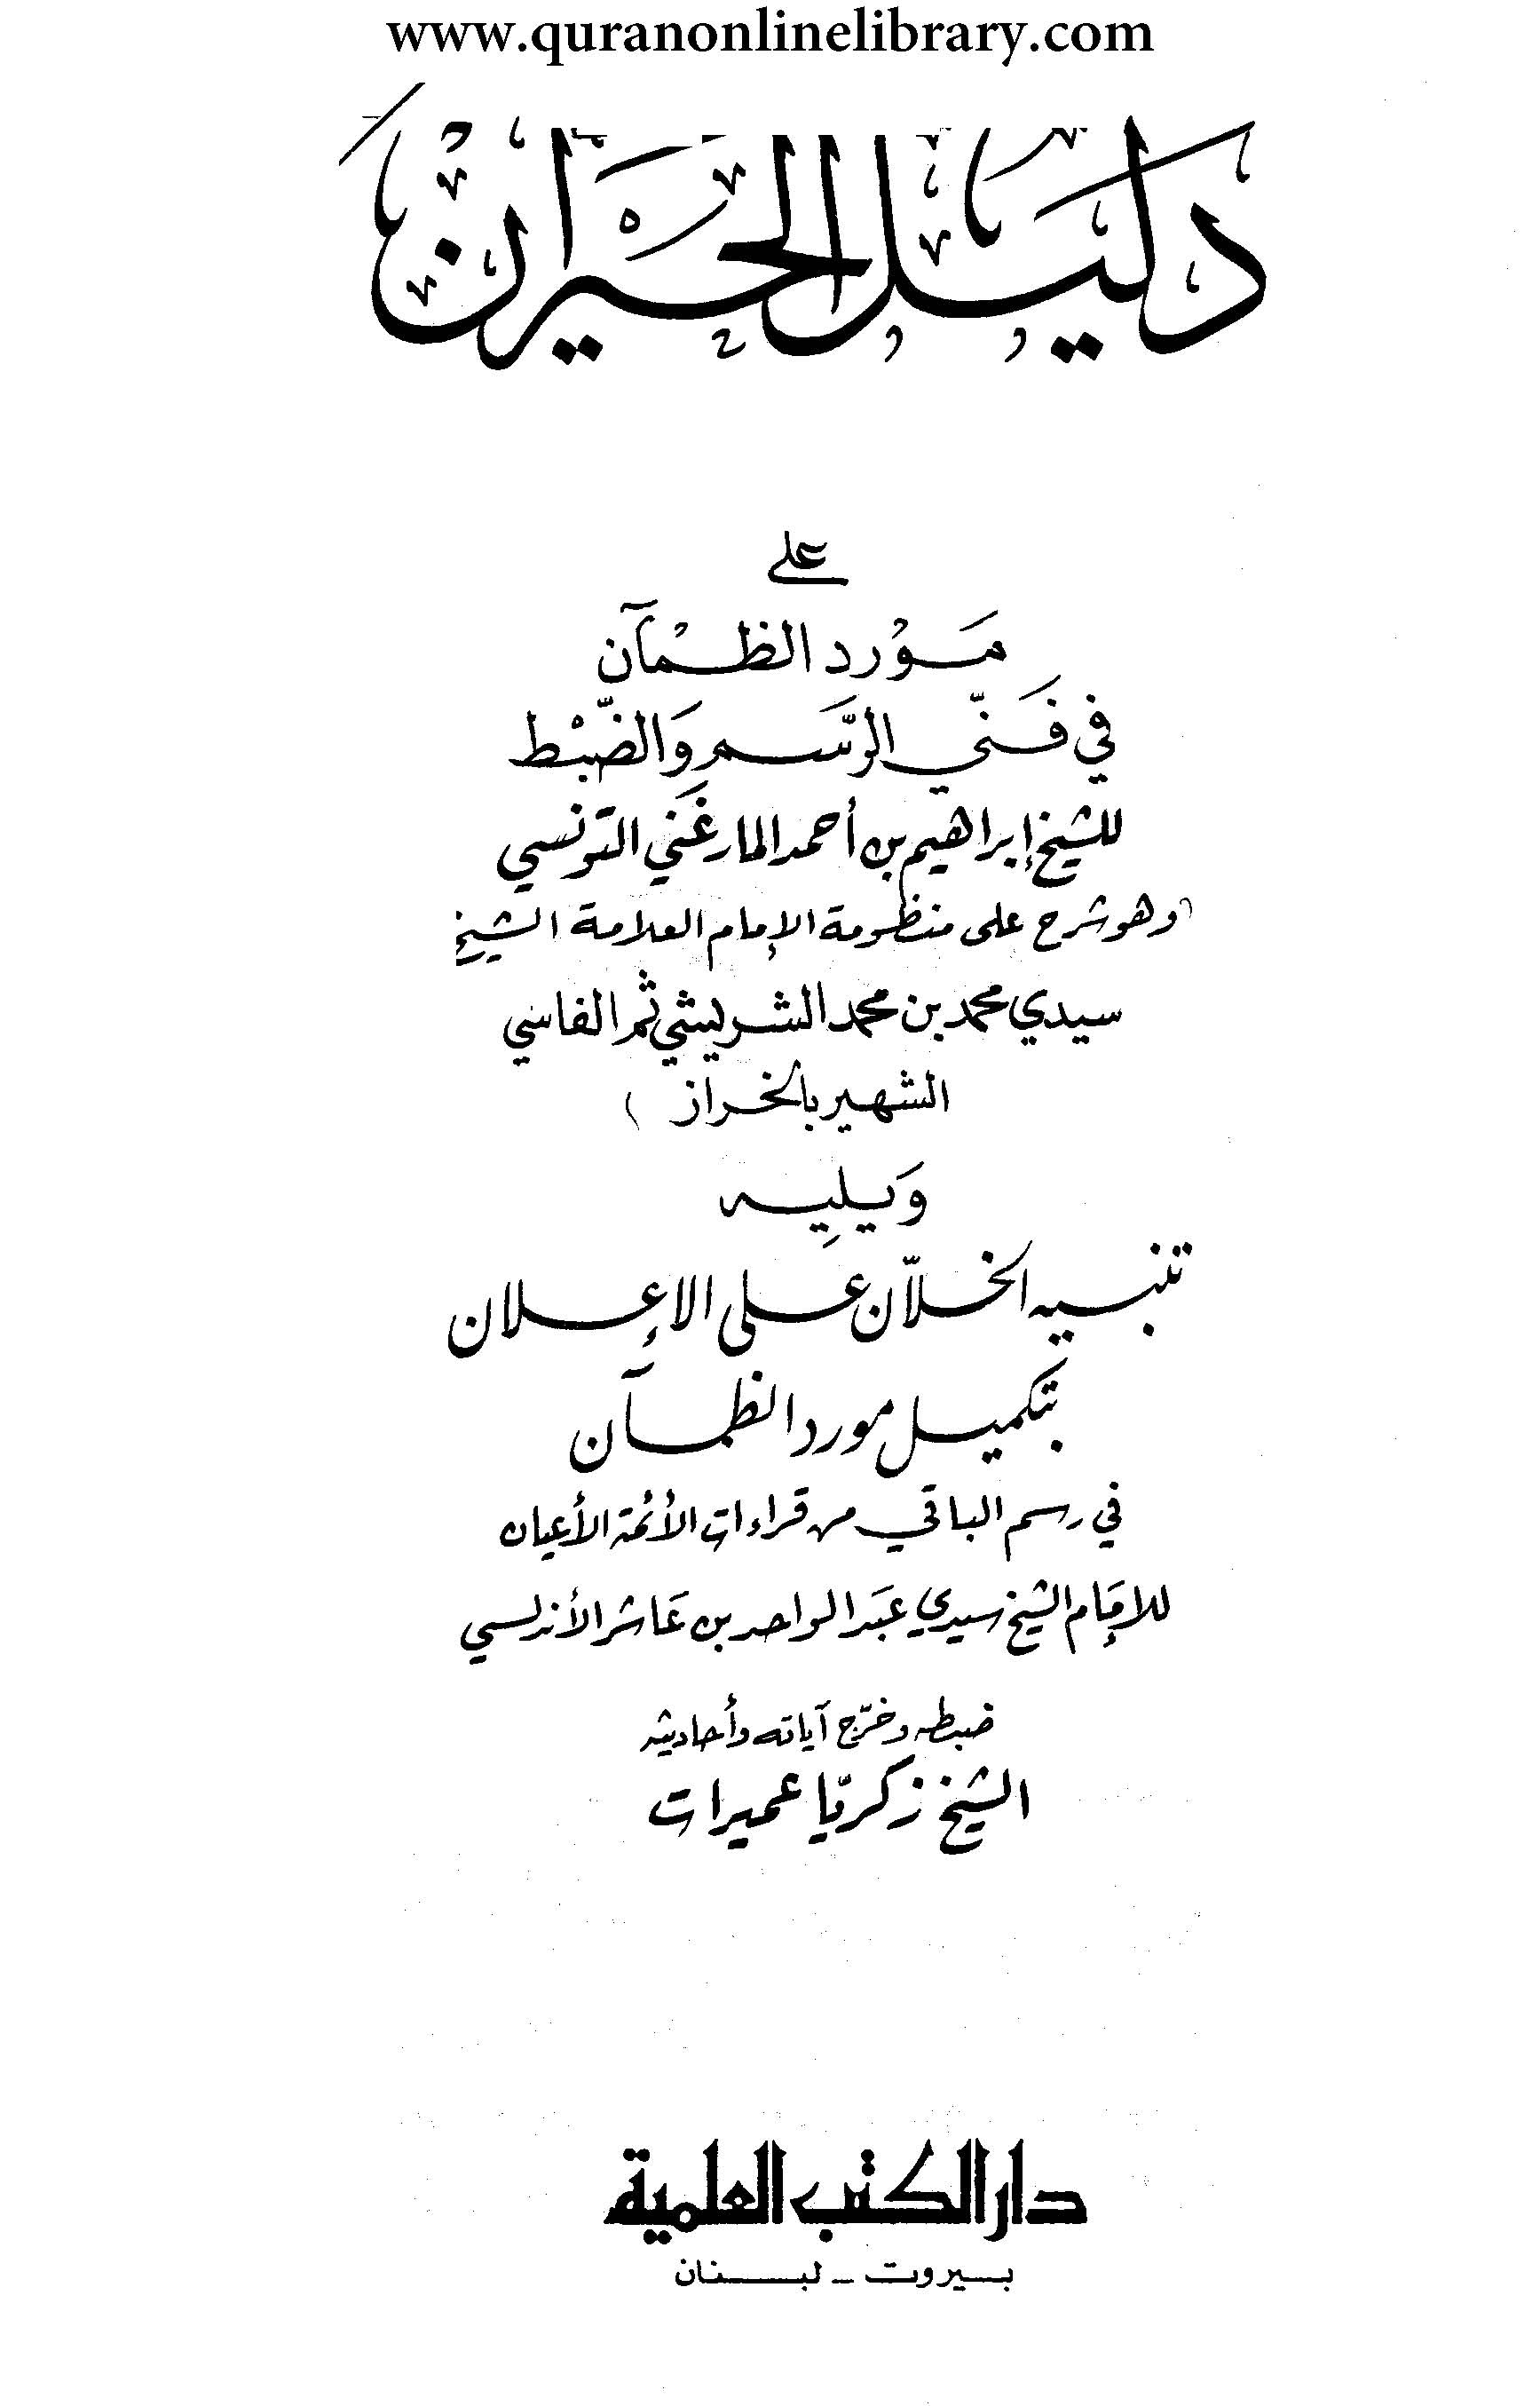 www.quranonlinelibrary.com
دَلِيلُ الحَيْرَانْ
على
مَوْرد الظمْآن
في فَنّي الرَّسم وَالضّبْط
للشيخ إبراهيم بن أحمد المارغَني التونسي
(وهو شرح على منظومة الإمام العلامة الشيخ
سيدي محمد بن محمد الشريشي ثم الفاسي
الشهير بالخراز)
وَيلِيه
تنبيه الخلّان على الإعلان
بتكميل مورد الظمآن
في رسم الباقي من قراءات الأئمة الأعيان
للإمَام الشيخ سيدي عبَد الواحد بن عَاشر الأندلسي
ضبطه وخرّج آياته وأحاديثه
الشيخ زكريّا عميرات
دار الكتب العلمية
بيروت - لبنان